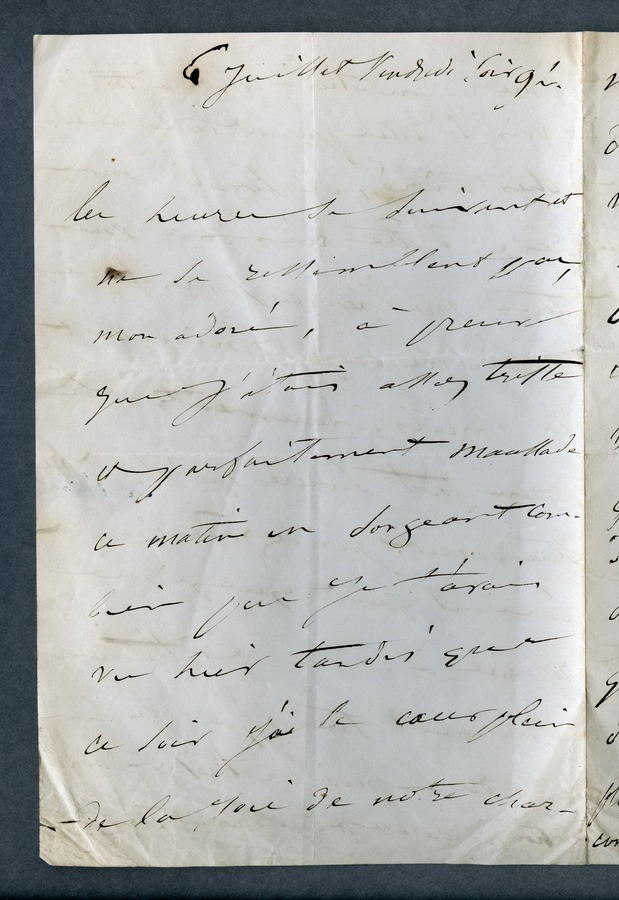 6 Juillet Vendredi soir 9h.
les heures se suivent et
ne se ressemblent pas,
mon adoré, à preuve
que j'étais assez triste
et parfaitement maussade
ce matin en songeant com-
bien peu je t'avais
vu hier tandis que
ce soir j'ai le cœur plein
de la joie de notre char-